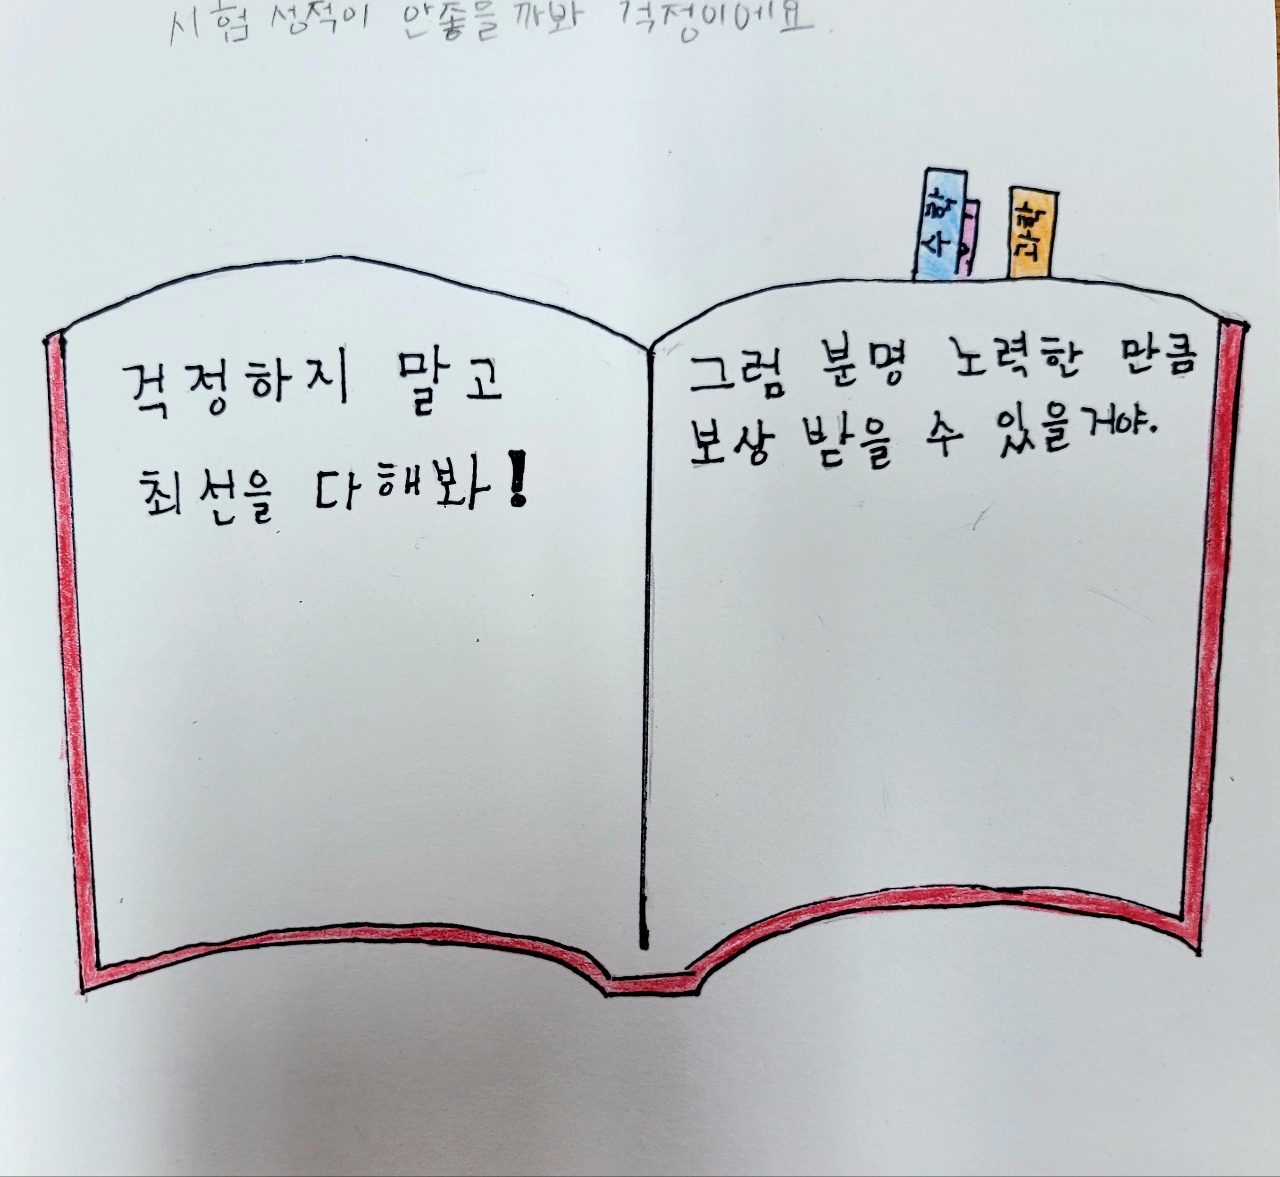 시험 성적이 안좋을까봐 걱정이에요.
수학
과학
걱정하지 말고
최선을 다해봐!
그럼 분명 노력한 만큼
보상 받을 수 있을거야.